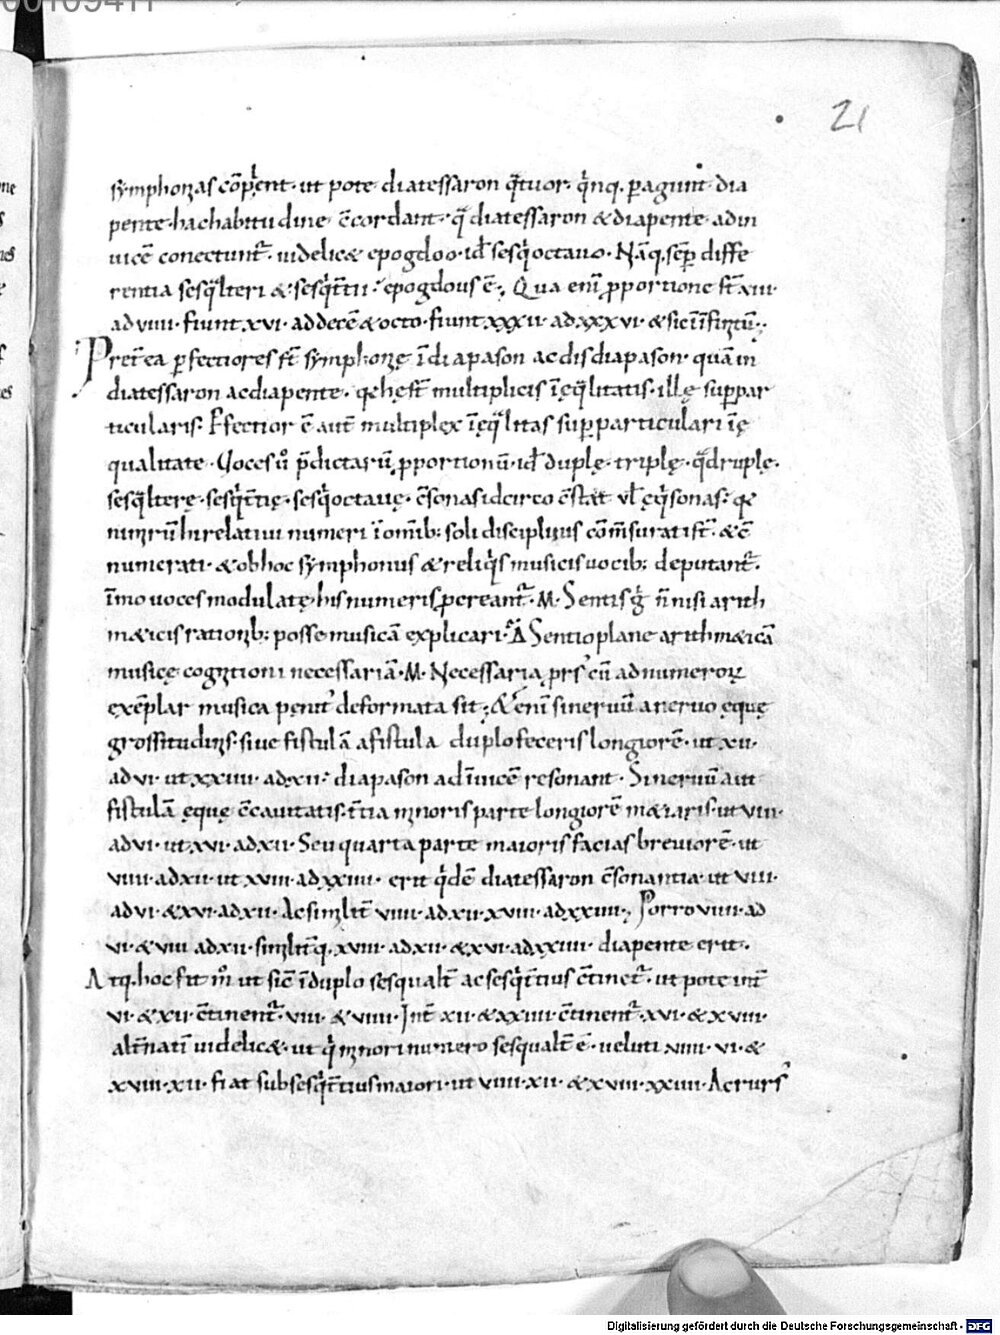 21
symphonias cōp̄ħent · ut pote diatessaron q̄tuor · q̄nq; p̱agunt · dia
pente · hac habitudine c̄cordant · qᵃ diatessaron & diapente · ad in
uicē conectunt᷑ · uidelic& epogdoo · id ÷ sesq̄octauo · Nāq; sēp diffe
rentia sesq̄lteri & sesq̄t̄tii · epogdous ē ; Qua eni ꝓportione st̄ xiii
ad uiiii · fiunt xvi · ad decē & octo · fiunt xxxii · ad xxxvi · & sic ī īfinitū ;
Pret̄ea p̱fectiores st̄ symphonię ī diapason ac disdiapason · quā in
diatessaron ac diapente · qę hę st̄ multiplicis īęq̄litatis · illę sup̱par
ticularis · P̱fectior ē aut̄ multiplex īęq̄litas sup̱particulari īę
qualitate · Voces ū p̄dictarū ꝓportionū · id ÷ duplę · triplę · qᵃdruplę ·
sesq̄lterę · sesq̄t̄tię · sesq̄octauę · c̄sonas idcirco c̄stat ul̄ ęq̄sonas · qę
nimirū hi relatiui numeri ī omīb; soli disciplinis cōm̄surati st̄ · & c̄
numerati · & ob hoc symphonus & reliq̄s musicis uocib; deputant᷑ ·
īmo uoces modulatę his numeris ꝓcreant᷑ · M · Sentis g̊ n̄ nisi arith
m&icis rationib; posse musicā explicari · Δ Sentio plane arithm&icā
musicę cognitioni necessariā · M · Necessaria ꝓrs᾽ cū ad numeroꝝ
exēplar musica penit᾽ deformata sit ; &eni si neruū a neruo ęquę
grossitudinis · siue fistulā a fistula duplo feceris longiorē · ut xii ·
ad vi · ut xxiiii · ad xii · diapason ad īuicē resonant · Si neruū aut
fistulā ęquę c̄cauitatis · t̄tia minoris parte longiorē m&iaris · ut viii ·
ad vi · ut xvi · ad xii · Seu quarta parte maioris facias breuiorē · ut
viiii · ad xii · ut xviii · ad xxiiii · erit q̄dē diatessaron c̄sonantia · ut viii ·
ad vi · & xvi · ad xii · Ac similit̄ viiii · ad xii · xviii · ad xxiiii ; Porro viiii · ad
vi · & viii ad xii · similit̄q; xviii · ad xii · & xvi · ad xxiiii · diapente erit ·
Atq; hoc fit m̄ ut sic ī duplo sesqualt̄ ac sesq̄t̄tius c̄tinet᷑ · ut pote int̄
vi · & xii · c̄tinent᷑ · viii · & viiii · Int̄ xii · & xxiiii · c̄tinent᷑ · xvi · & xviii ·
alt̄natī uidelic& · ut q̄ minori numero sesqualt̄ ē · ueluti viiii · vi · &
xviii · xii · fiat subsesq̄t̄tius maiori · ut viiii · xii · & xviii · xxiiii · Ac rurs᾽
Digitalisierung gefördert durch die Deutsche Forschungsgemeinschaft - DFG